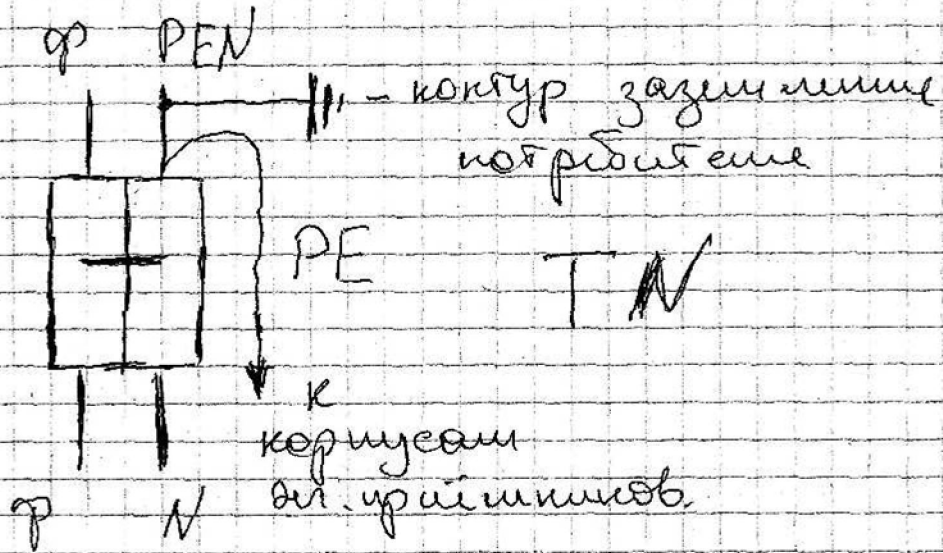 ф PEN
- контур заземления
потребителя
PE
TN
к
корпусам
эл. приёмников.
ф N